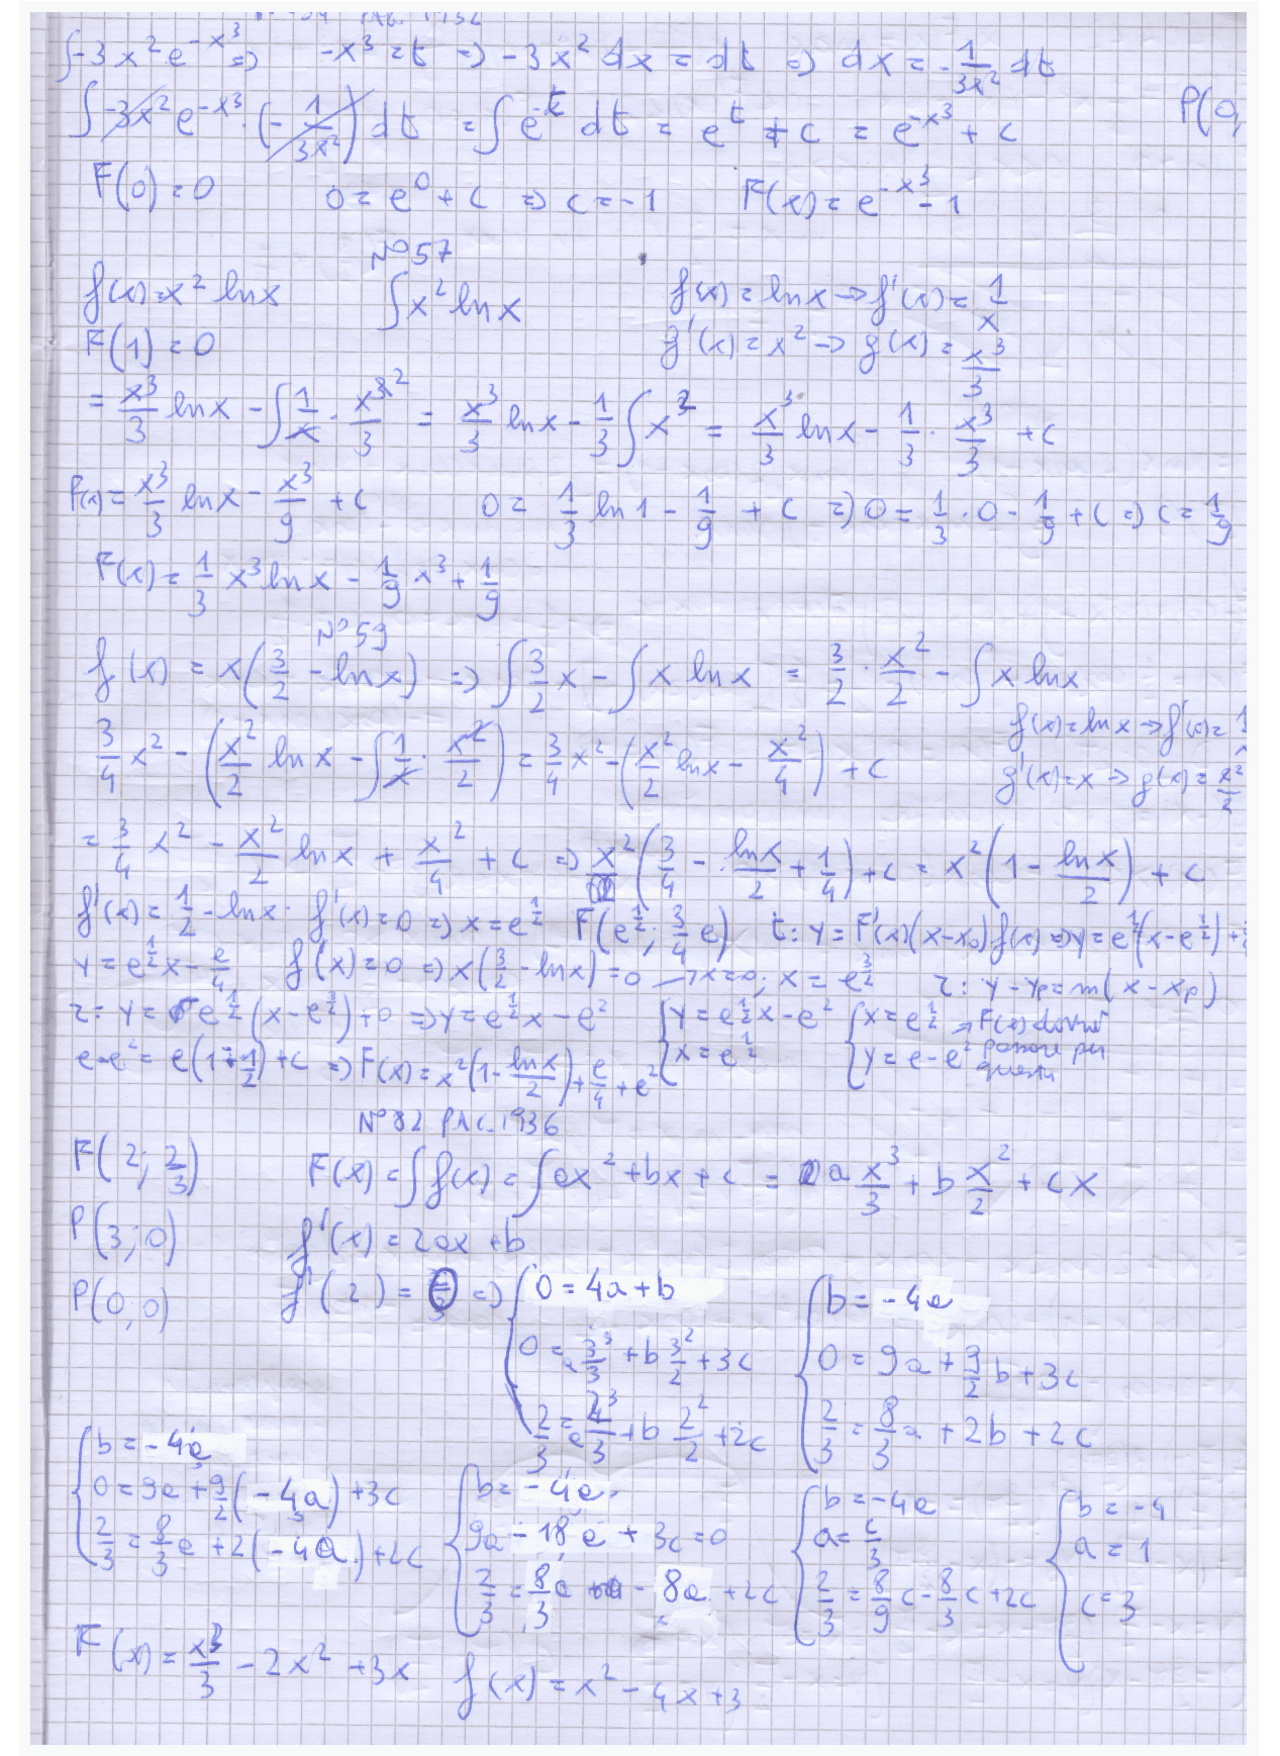 ∫-3x² e^(-x³) => -x³ = t => -3x² dx = dt => dx = -1/(3x²) dt
P(0,
∫ -3x² e^(-x³) · (-1/(3x²)) dt = ∫ e^t dt = e^t + c = e^(-x³) + c
F(0) = 0   0 = e^0 + c => c = -1   F(x) = e^(-x³) - 1
N° 57
f(x) = x² ln x   ∫ x² ln x   f(x) = ln x → f'(x) = 1/x
F(1) = 0   g'(x) = x² → g(x) = x³/3
= x³/3 ln x - ∫ 1/x · x³/3 = x³/3 ln x - 1/3 ∫ x² = x³/3 ln x - 1/3 · x³/3 + c
F(x) = x³/3 ln x - x³/9 + c   0 = 1/3 ln 1 - 1/9 + c => 0 = 1/3 · 0 - 1/9 + c => c = 1/9
F(x) = 1/3 x³ ln x - 1/9 x³ + 1/9
N° 59
f(x) = x(3/2 - ln x) => ∫ 3/2 x - ∫ x ln x = 3/2 · x²/2 - ∫ x ln x
f(x) = ln x → f'(x) = 1
3/4 x² - (x²/2 ln x - ∫ 1/x · x²/2) = 3/4 x² - (x²/2 ln x - x²/4) + c
g'(x) = x → g(x) = x²/2
= 3/4 x² - x²/2 ln x + x²/4 + c => x² (3/4 - ln x/2 + 1/4) + c = x² (1 - ln x/2) + c
f'(x) = 1/2 - ln x · f'(x) = 0 => x = e^(1/2)   F(e^(1/2); 3/4 e)   t: y = F'(x)(x - x₀) f(x) => y = e^(1/2)(x - e^(1/2)) +
y = e^(1/2) x - e/4   f(x) = 0 => x(3/2 - ln x) = 0 → x = 0; x = e^(3/2)   r: y - yp = m(x - xp)
r: y = e^(1/2) (x - e^(3/2)) + 0 => y = e^(1/2) x - e²   { y = e^(1/2) x - e²   { x = e^(1/2) → F(x) dovrà
e - e² = e(1 - 1/2) + c => F(x) = x² (1 - ln x/2) + e/4 + e²   x = e^(1/2)   y = e - e² passare per
N° 82 PAG. 1936
F(2; 2/3)   F(x) = ∫ f(x) = ∫ ax² + bx + c = a x³/3 + b x²/2 + cx
P(3; 0)   f'(x) = 2ax + b
P(0, 0)   f'(2) = 0 => { 0 = 4a + b   { b = -4a
0 = a 3³/3 + b 3²/2 + 3c   0 = 9a + 9/2 b + 3c
2/3 = a 2³/3 + b 2²/2 + 2c   2/3 = 8/3 a + 2b + 2c
{ b = -4a   { b = -4a   { b = -4a   { b = -4
0 = 9a + 9/2 (-4a) + 3c   9a - 18a + 3c = 0   a = c/3   a = 1
2/3 = 8/3 a + 2(-4a) + 2c   2/3 = 8/3 a - 8a + 2c   2/3 = 8/9 c - 8/3 c + 2c   c = 3
F(x) = x³/3 - 2x² + 3x   f(x) = x² - 4x + 3